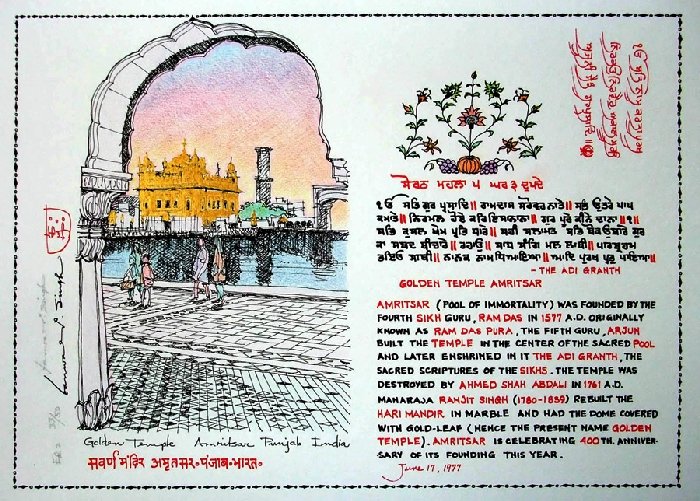 ਸੋਰਠ ਮਹਲਾ ੫ ਘਰ ੩ ਦੁਪਦੇ
ੴ ਸਤਿ ਗੁਰ ਪ੍ਰਸਾਦਿ॥ ਰਾਮਦਾਸ ਸਰੋਵਰ ਨਾਤੇ॥ ਸਭ ਉਤਰੇ ਪਾਪ
ਕਮਾਤੇ॥ ਨਿਰਮਲ ਹੋਏ ਕਰਿ ਇਸਨਾਨਾ॥ ਗੁਰ ਪੂਰੇ ਕੀਨੇ ਦਾਨਾ॥੧॥
ਸਭਿ ਕੁਸਲ ਖੇਮ ਪ੍ਰਭਿ ਧਾਰੇ॥ ਸਹੀ ਸਲਾਮਤ ਸਭਿ ਥੋਕ ਉਬਾਰੇ ਗੁਰ
ਕਾ ਸਬਦ ਵੀਚਾਰੇ॥ ਰਹਾਉ॥ ਸਾਧ ਸੰਗਿ ਮਲ ਲਾਥੀ॥ ਪਾਰਬ੍ਰਹਮ
ਭਇਓ ਸਾਥੀ॥ ਨਾਨਕ ਨਾਮ ਧਿਆਇਆ॥ ਆਦਿ ਪੁਰਖ ਪ੍ਰਭੁ ਪਾਇਆ॥
- THE ADI GRANTH
GOLDEN TEMPLE AMRITSAR
AMRITSAR (POOL OF IMMORTALITY) WAS FOUNDED BY THE
FOURTH SIKH GURU, RAM DAS IN 1577 A.D. ORIGINALLY
KNOWN AS RAM DAS PURA, THE FIFTH GURU, ARJUN
BUILT THE TEMPLE IN THE CENTER OF THE SACRED POOL
AND LATER ENSHRINED IN IT THE ADI GRANTH, THE
SACRED SCRIPTURES OF THE SIKHS. THE TEMPLE WAS
DESTROYED BY AHMED SHAH ABDALI IN 1761 A.D.
MAHARAJA RANJIT SINGH (1780-1839) REBUILT THE
HARI MANDIR IN MARBLE AND HAD THE DOME COVERED
WITH GOLD-LEAF (HENCE THE PRESENT NAME GOLDEN
TEMPLE). AMRITSAR IS CELEBRATING 400TH. ANNIVER-
SARY OF ITS FOUNDING THIS YEAR.
June 17, 1977
Golden Temple Amritsar Punjab India
ਸਵਰਣ ਮੰਦਿਰ ਅਮ੍ਰਤਸਰ॰ਪੰਜਾਬ॰ਭਾਰਤ॰